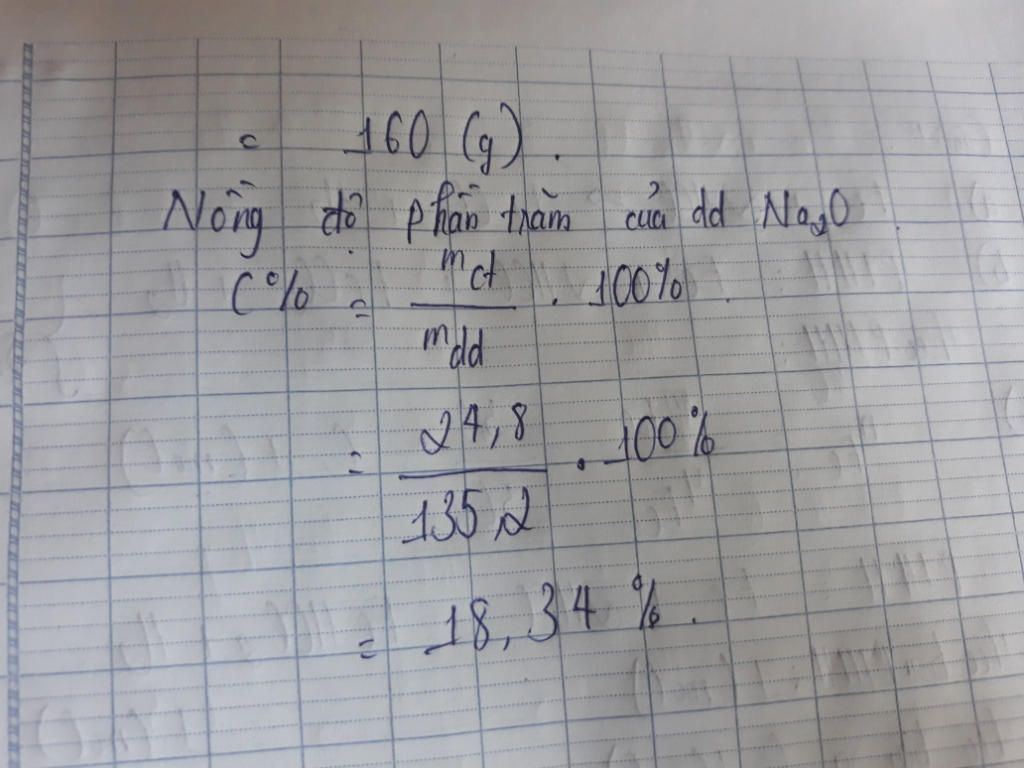 = 160 (g).
Nồng độ phần trăm của dd Na2O.
C% = mct / mdd . 100%.
= 24,8 / 135,2 . 100%
= 18,34 %.